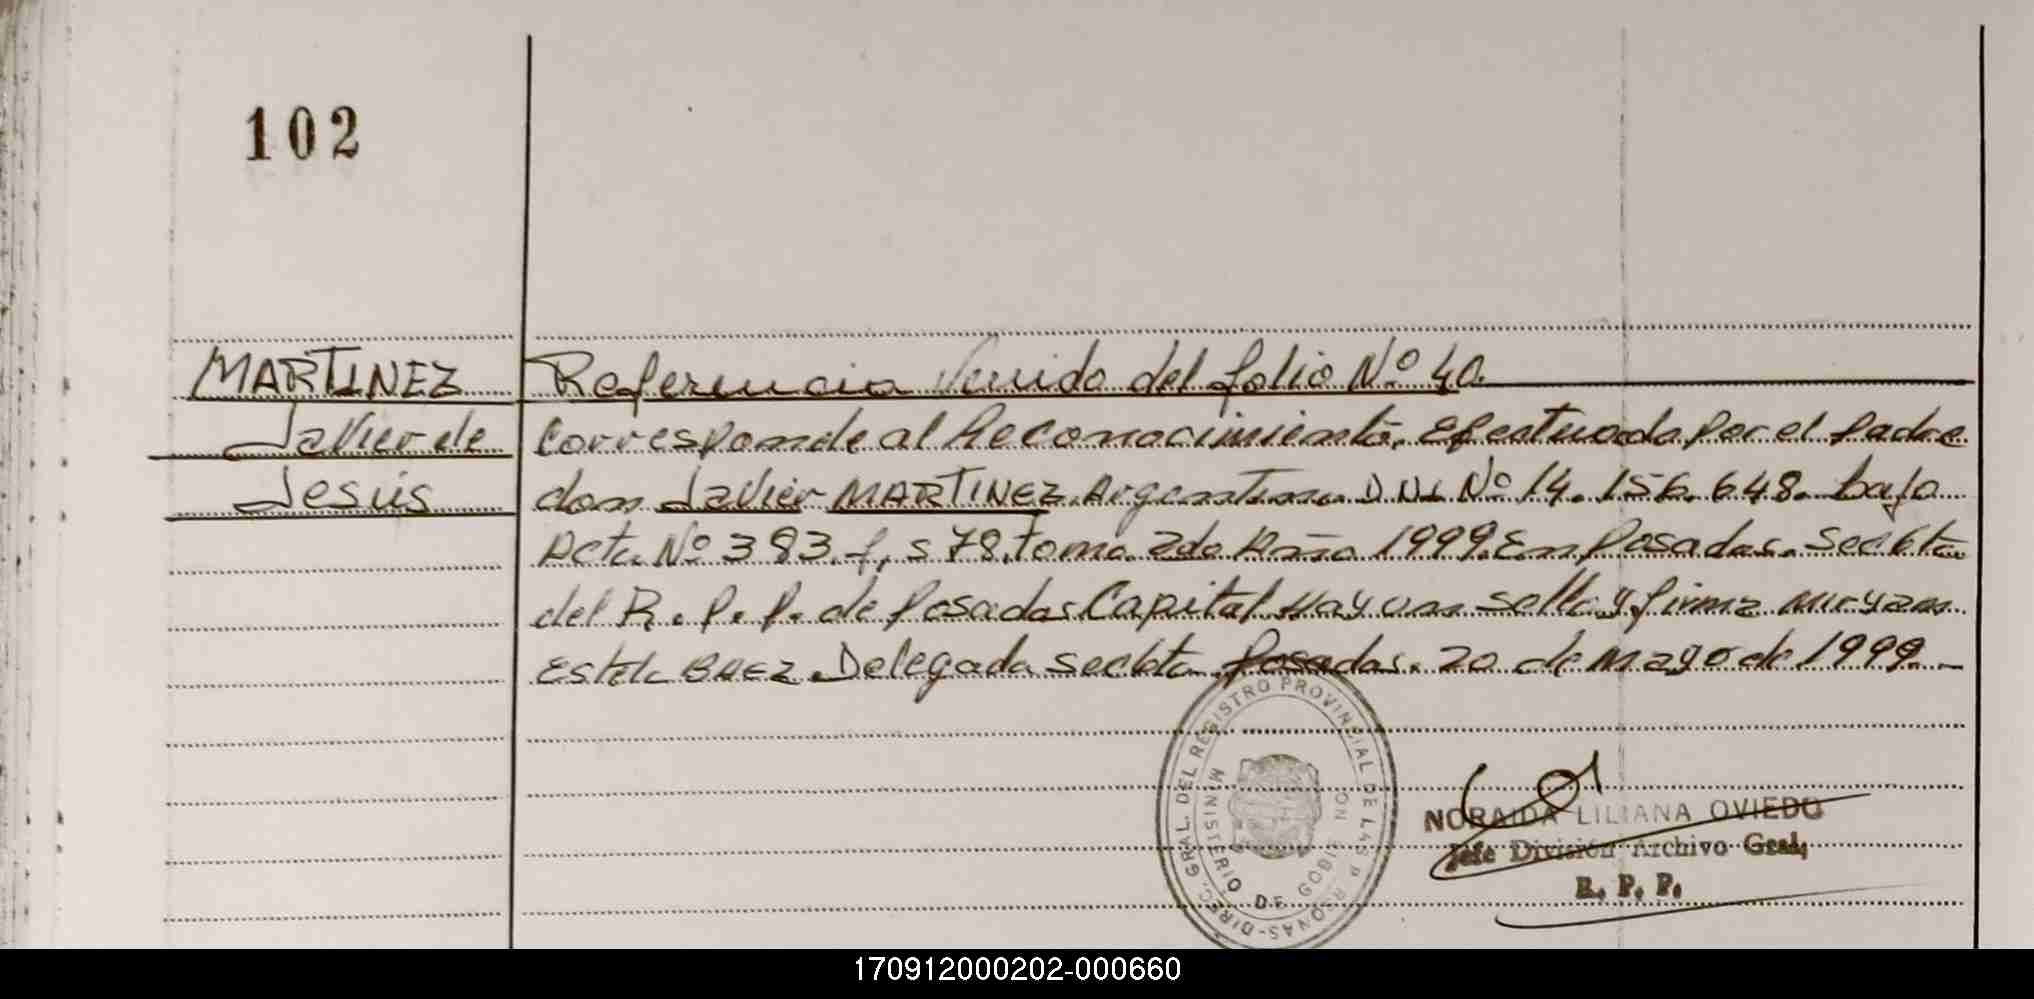 102
MARTINEZ Referencia Venido del folio Nº 40.
Javier de Corresponde al Reconocimiento, efectuado por el padre
Jesús don Javier MARTINEZ Argentino D.N.I. Nº 14.156.648. bajo
Acta Nº 383. f,s 78. tomo 2do Año 1999. En Posadas. Secc 6ta
del R.P.P. de Posadas Capital Hay un sello y firma Miryam
Estela BAEZ. Delegada Secc 6ta Posadas. 20 de Mayo de 1999.-
DIREC. GRAL. DEL REGISTRO PROVINCIAL DE LAS P RSONAS-
MINISTERIO DE GOBI NO
NORAIDA LILIANA OVIEDO
Jefe División Archivo Gral,
R. P. P.
170912000202-000660